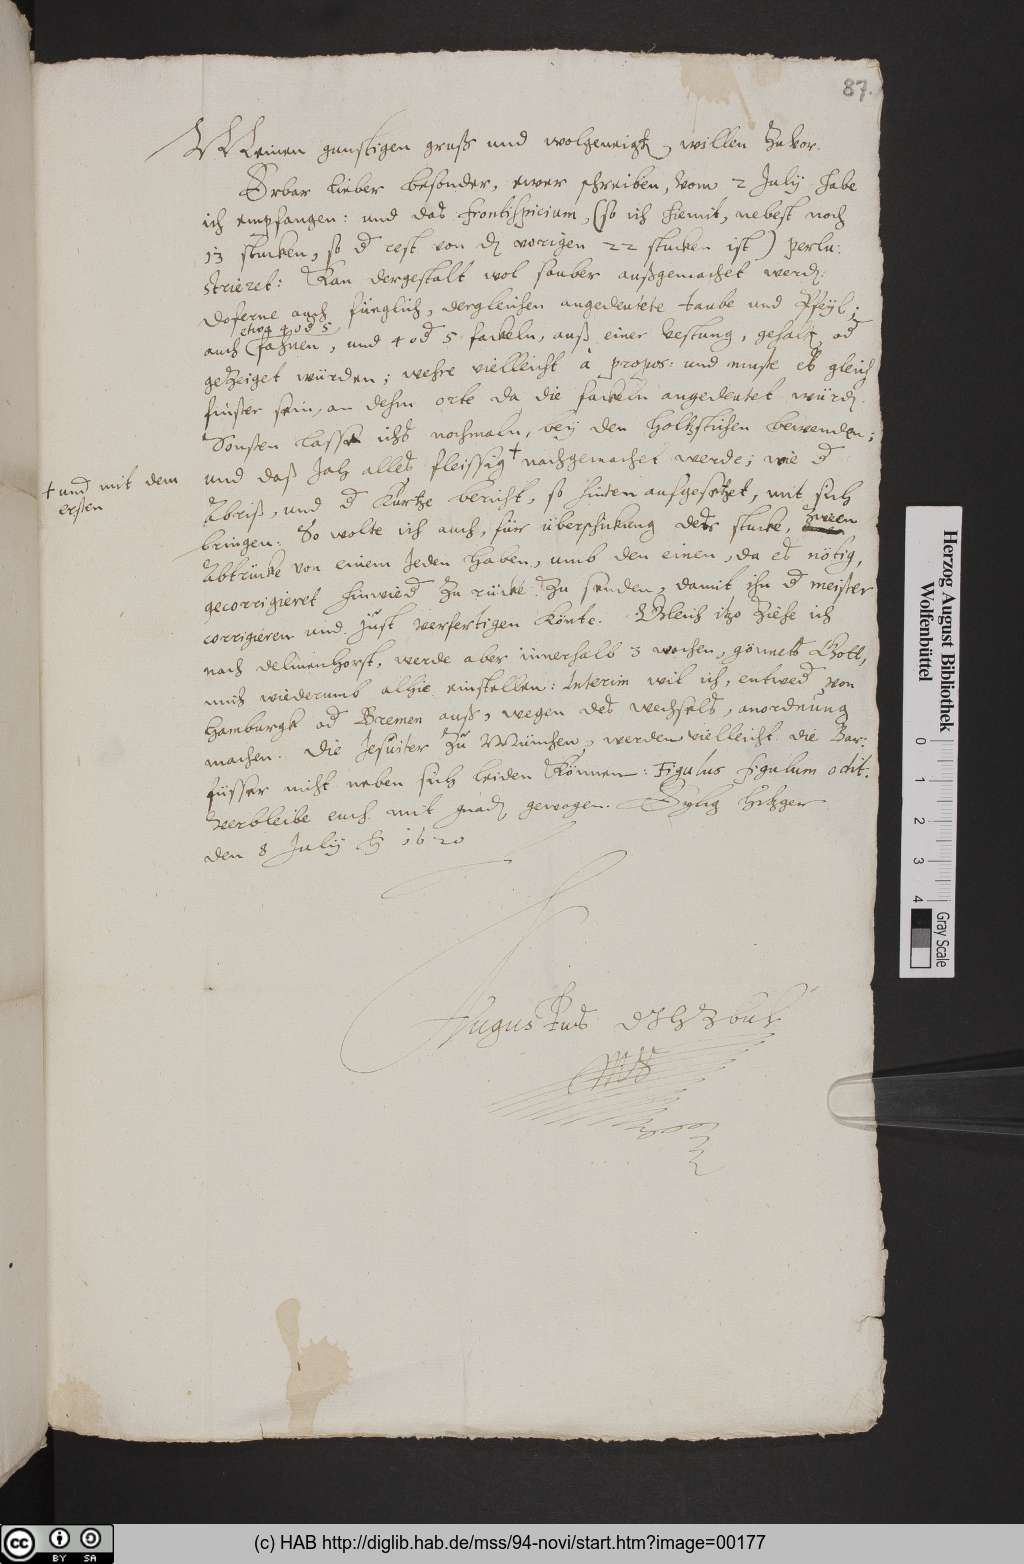 87.
Meinen gunstigen gruß und wolgeneigt willen zuvor.
Erbar lieber besonder, ewer schreiben, vom 2 July habe
ich empfangen: und das frontispicium, (so ich hiemit, nebest noch
13 stucken, so d rest von dem vorigen 22 stucken ist) perlu-
strieret: Kan dergestalt wol sauber außgemachet werden:
doferne auch füeglich, dergleichen angedeutete taube und Pfeyl;
etwa 4 od 5
auch fahnen, und 4 od 5 fackeln, auß einer Vestung, gehalten od
gezeiget würden; wehre vielleicht à propos: und muste es gleich
finster sein, an dehm orte da die fackeln angedeutet würd.
Sonsten lasse ichs nochmaln, bey den holtzstichen bewenden;
und daß solches alles fleissig + nachgemachet werde; wie d
+ und mit dem
ersten
Abriß, und d Kurtze bericht, so hinten aufgesetzet, mit sich
bringen. So wolte ich auch, für überschickung der stucke, zween
Abtrücke von einem Jeden haben, umb den einen, da es nötig,
gecorrigieret hinwied zu rücke zu senden, damit ihn d meister
corrigieren und just verfertigen könte. Gleich itzo ziehe ich
nach delmenhorst, werde aber innerhalb 3 wochen, gönnets Gott,
mich wiederumb alhie einstellen: Interim wil ich, entwed von
Hamburgk od Bremen auß, wegen des wechsels, anordnung
machen. Die Jesuiter zu München, werden vielleicht die Bar-
füsser nicht neben sich leiden können: Figulus figulum odit.
Verbleibe euch mit gnad gewogen. Eylig Hitzger
den 8 July 1620
Augustus
Herzog August Bibliothek
Wolfenbüttel
0 1 2 3 4
Gray Scale
(c) HAB http://diglib.hab.de/mss/94-novi/start.htm?image=00177
cc BY SA